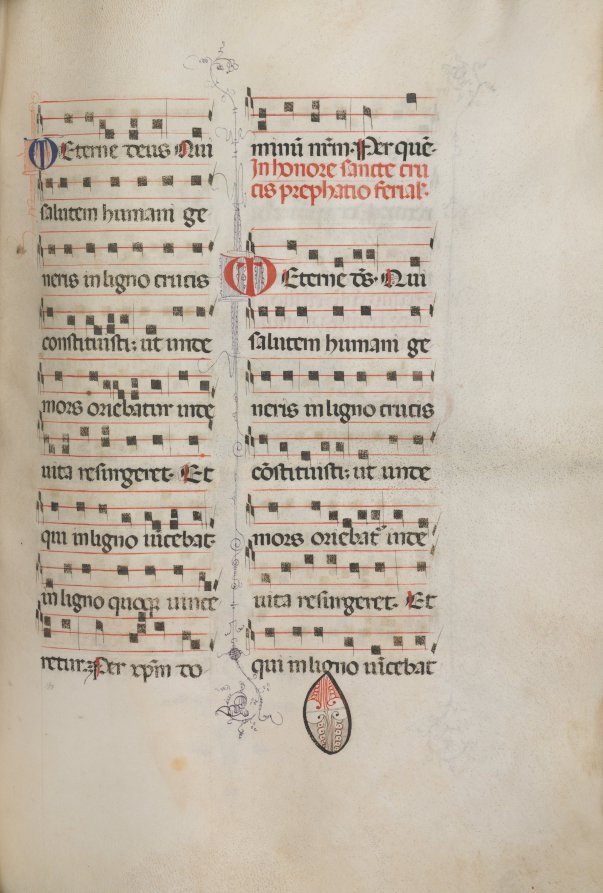 Eterne deus Qui
salutem humani ge
neris in ligno crucis
constituisti: ut unde
mors oriebatur inde
uita resurgeret. Et
qui in ligno uincebat
in ligno quoqꝫ uince
retur: Per xp̄m do
minū nr̄m. Per quē.
In honore sancte cru
cis prephatio ferial'.
Eterne ds̄. Qui
salutem humani ge
neris in ligno crucis
cōstituisti: ut unde
mors oriebat᷑ inde
uita resurgeret. Et
qui in ligno uīcebat